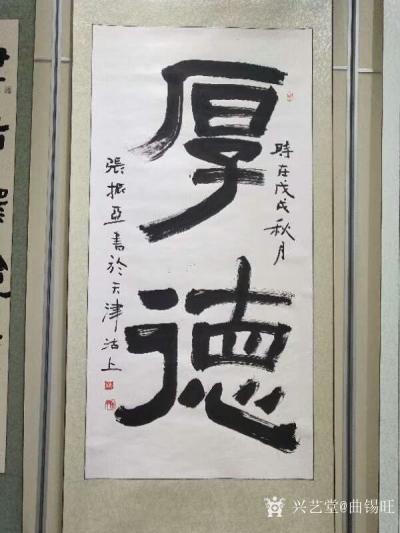 厚德
時在戊戌秋月
張振亞書於天津沽上
兴艺堂@曲锡旺